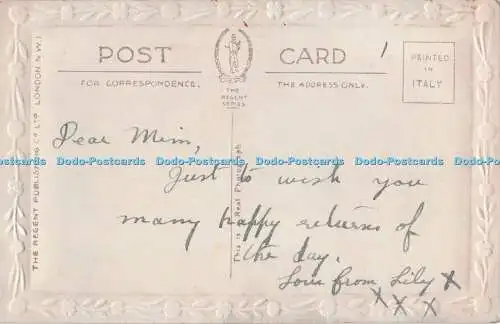 POST CARD
1
FOR CORRESPONDENCE.
THE ADDRESS ONLY.
PRINTED
IN
ITALY
THE
REGENT
SERIES
THE REGENT PUBLISHING CO LTD LONDON N.W.1
This is a Real Photograph
Dear Mim,
Just to wish you
many happy returns of
the day.
Love from Lily X
X X X
Dodo-Postcards Dodo-Postcards Dodo-Postcards Dodo-Postcards Dodo-Postcards